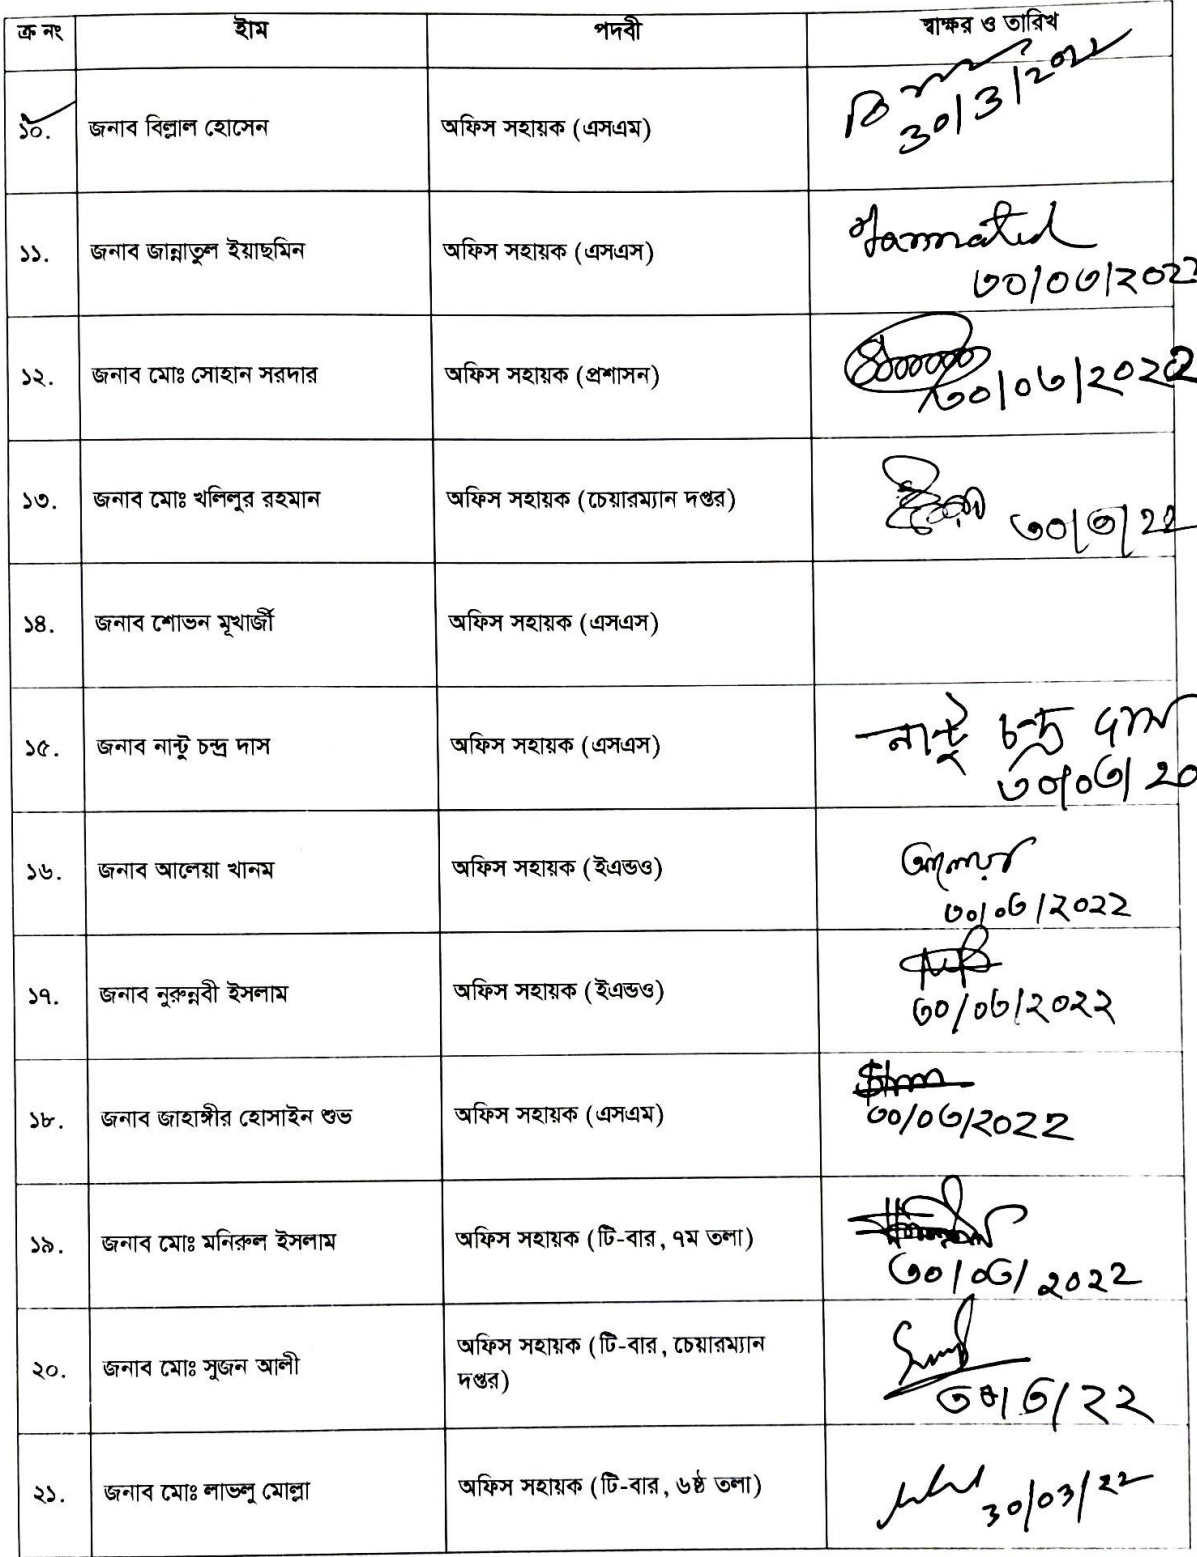 ক্র নং ইাম পদবী স্বাক্ষর ও তারিখ
১০. জনাব বিল্লাল হোসেন অফিস সহায়ক (এসএম)
30/3/২০২২
১১. জনাব জান্নাতুল ইয়াছমিন অফিস সহায়ক (এসএস) Jannatul
৩০/০৩/২০২২
১২. জনাব মোঃ সোহান সরদার অফিস সহায়ক (প্রশাসন)
৩০/০৩/২০২২
১৩. জনাব মোঃ খলিলুর রহমান অফিস সহায়ক (চেয়ারম্যান দপ্তর)
৩০/৩/২২
১৪. জনাব শোভন মূখার্জী অফিস সহায়ক (এসএস)
১৫. জনাব নান্টু চন্দ্র দাস অফিস সহায়ক (এসএস) নান্টু চন্দ্র দাস
৩০/০৩/২০
১৬. জনাব আলেয়া খানম অফিস সহায়ক (ইএন্ডও) আলেয়া
৩০/০৩/২০২২
১৭. জনাব নুরুন্নবী ইসলাম অফিস সহায়ক (ইএন্ডও)
৩০/০৩/২০২২
১৮. জনাব জাহাঙ্গীর হোসাইন শুভ অফিস সহায়ক (এসএম)
৩০/০৩/২০২২
১৯. জনাব মোঃ মনিরুল ইসলাম অফিস সহায়ক (টি-বার, ৭ম তলা)
৩০/০৩/২০২২
২০. জনাব মোঃ সুজন আলী অফিস সহায়ক (টি-বার, চেয়ারম্যান
দপ্তর)
৩০/৩/২২
২১. জনাব মোঃ লাভলু মোল্লা অফিস সহায়ক (টি-বার, ৬ষ্ঠ তলা)
30/03/২২